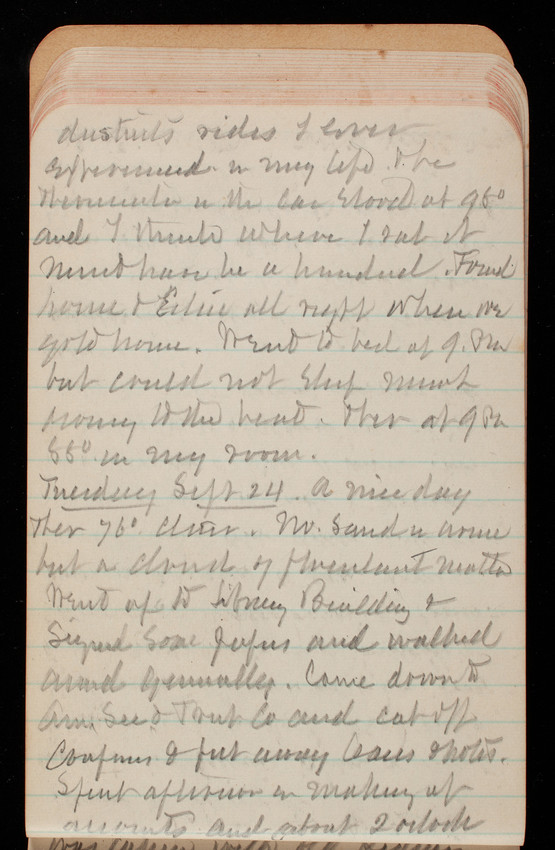 dustiest rides I ever
experienced in my life. The
thermometer in the car stood at 96°
and I think where I sat it
must have be a hundred. Found
home & all right when we
gold home. Went to bed at 9. Pm
but could not sleep much
to the heat. Ther at 9 Pm
88° in my room.
Tuesday Sept 24. A nice day
Ther 76° clear. No. Sand
but a cloud of matter
Went up to Library Building &
Signed Some papers and walked
around generally. Come down to
Am. Sec & Trust Co and cut off
Coupons & put away loans & notes.
Spent afternoon in making up
accounts and about 2 oclock
was taken with